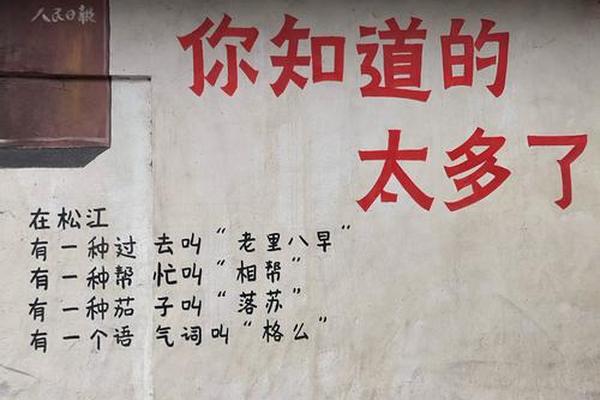 人民日報
你知道的
太多了
在松江
有一种过 去叫“老里八早”
有一种帮 忙叫“相帮”
有一种茄 子叫“落苏”
有一个语 气词叫“格么”